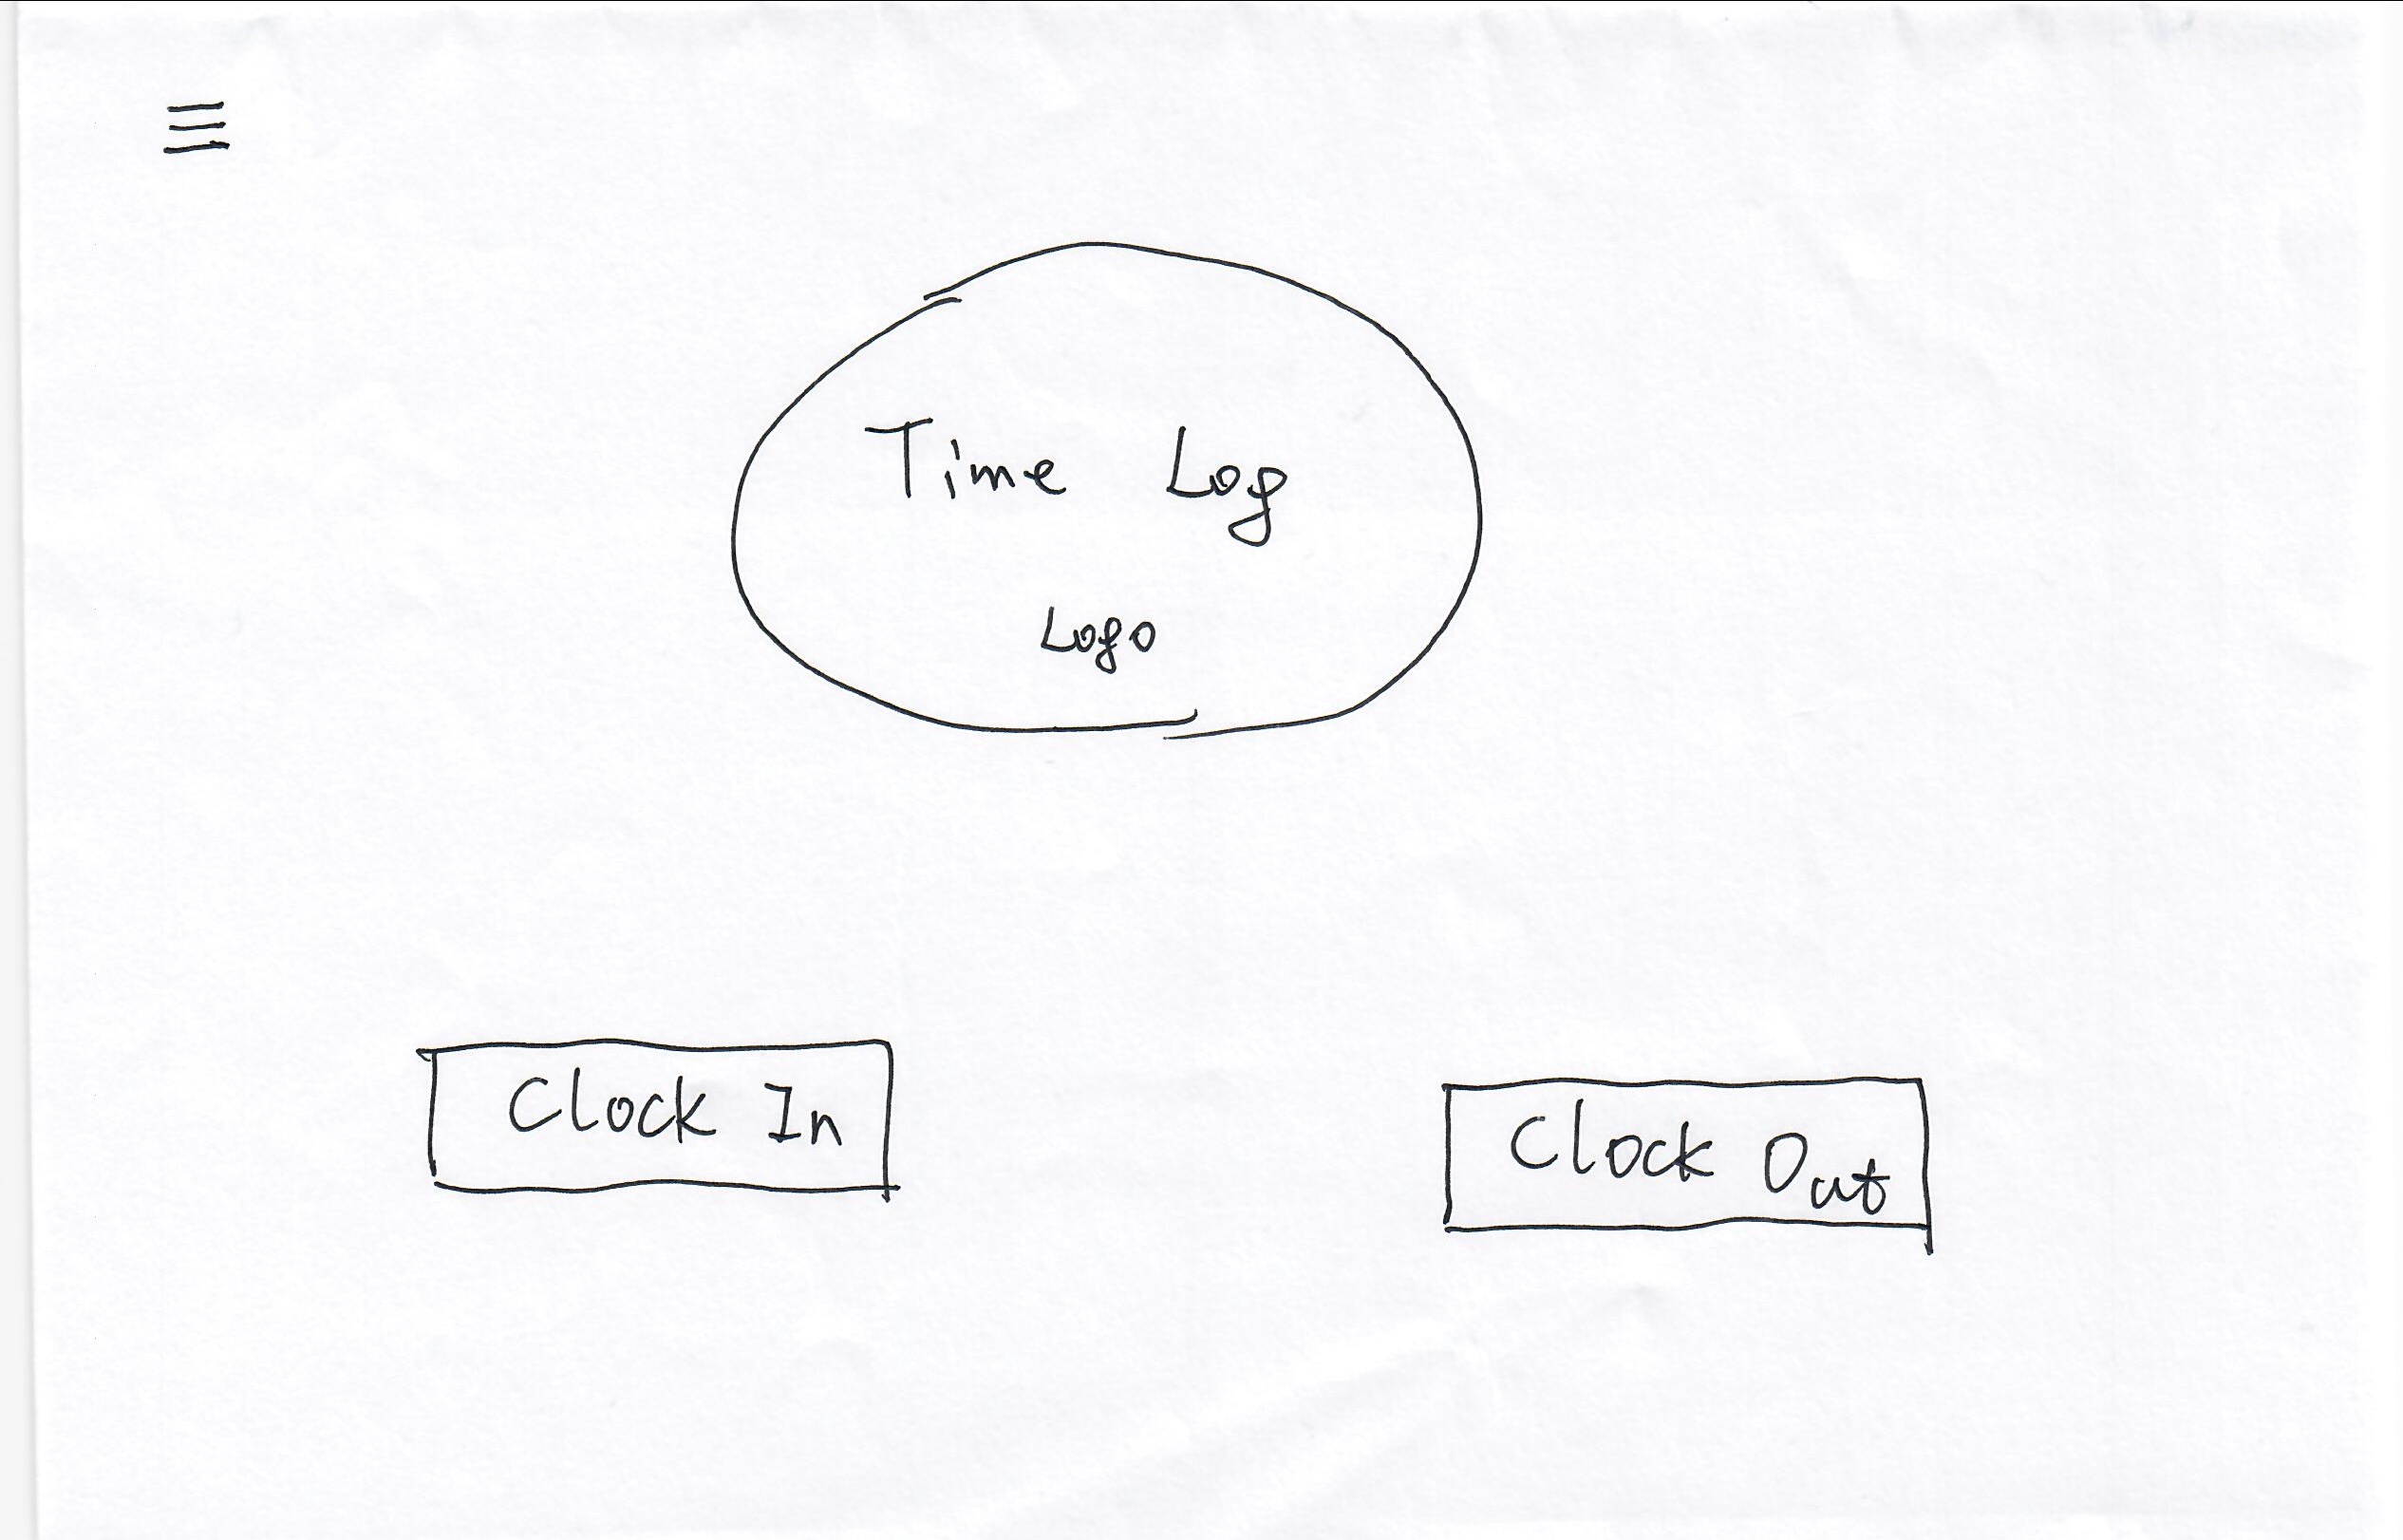 Time Log
Logo
Clock In
Clock Out